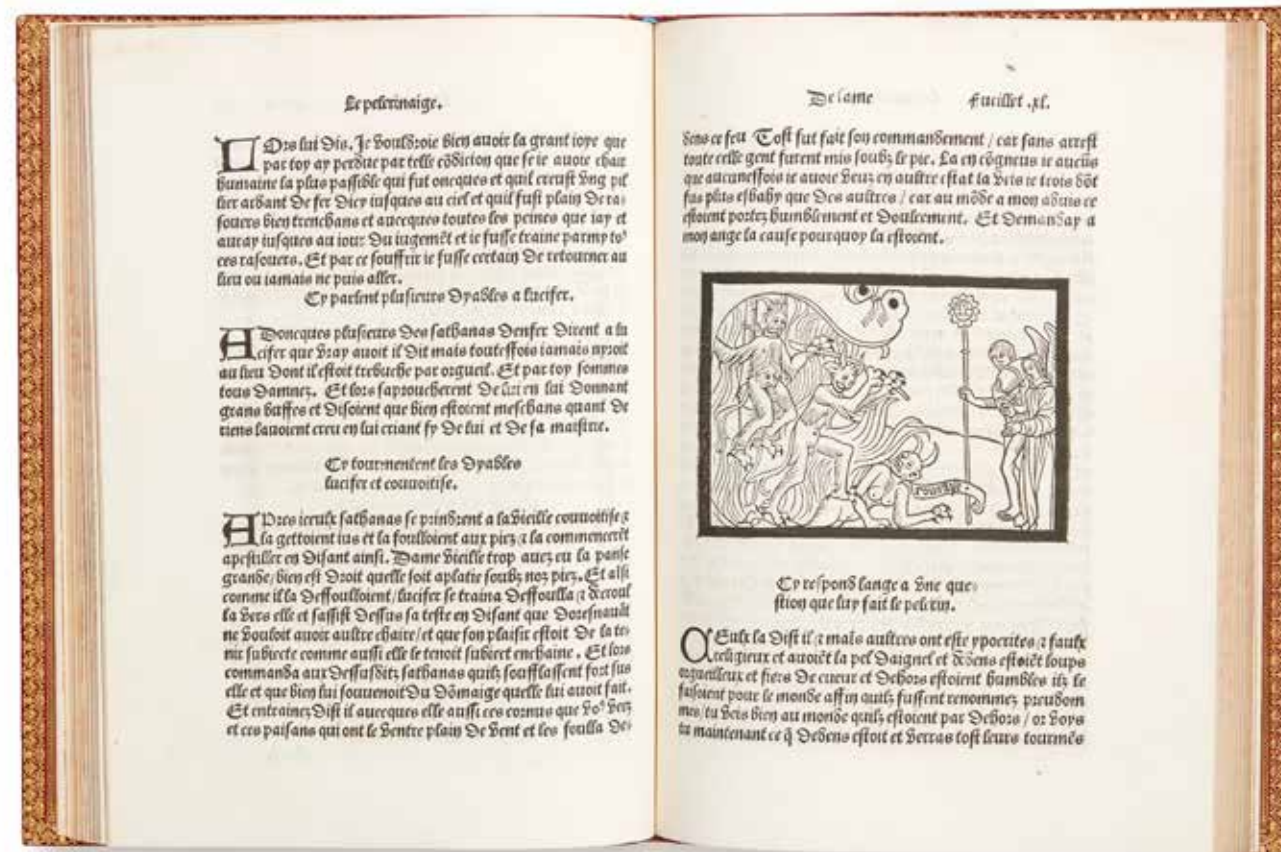 Le pelerinaige.
LOrs lui dis. Je vouldroie bien avoir la grant ioye que
par toy ay perdue par telle cõdicion que se ie avoie chair
humaine la plus passible qui fut oncques et quil creust ung pil
lier ardant de fer dicy iusques au ciel et quil fust plain de ra-
souers bien trenchans et avecques toutes les peines que iay et
auray iusques au iour du iugemẽt et ie fusse traine parmy to⁹
ces rasouers. Et par ce souffrir ie fusse certain de retourner au
lieu ou iamais ne puis aller.
Cy parlent plusieurs dyables a lucifer.
ADoncques plusieurs des sathanas denfer dirent a lu
cifer que vray avoit il dit mais touteffois iamais nyroit
au lieu dont il estoit trebuche par orgueil. Et par toy sommes
tous damnez. Et lors saproucherent de lui en lui donnant
grans buffes et disoient que bien estoient meschans quant de
riens lavoient creu en lui criant fy de lui et de sa maistrie.
Cy tourmentent les dyables
lucifer et couvoitise.
APres iceulx sathanas se prindrent a la vieille couvoitise ⁊
la gettoient ius et la foulloient aux piez ⁊ la commencerẽt
apestiller en disant ainsi. Dame vieille trop avez eu la panse
grande/bien est droit quelle soit aplatie soubz noz piez. Et alsi
comme il la deffoulloient/lucifer se traina deffoulla ⁊ decroul
la vers elle et sassist dessus sa teste en disant que doresnavãt
ne vouloit avoir aultre chaire/et que son plaisir estoit de la te-
nir subiecte comme aussi elle le tenoit subiect enchaine. Et lors
commanda aux dessusditz sathanas quilz soufflassent fort sus
elle et que bien lui souvenoit du dõmaige quelle lui avoit fait.
Et entrainez dist il avecques elle aussi ces cornus que vo⁹ veez
et ces paisans qui ont le ventre plain de vent et les foulla de-
De lame Fueillet .xl.
dens ce feu Tost fut fait son commandement/car sans arrest
toute celle gent furent mis soubz le pie. La en cõgneus ie aucũs
que aucuneffois ie avoie veuz en aultre estat la vris ie trois dõt
fus plus esbahy que des aultres/car au mõde a mon advis ce
estoient portez humblement et doulcement. Et demanday a
mon ange la cause pourquoy la estoient.
Cy respond lange a une que-
stion que luy fait le pelerin.
CEulx la dist il ⁊ mais aultres ont este ypocrites ⁊ faulx
religieux et avoiẽt la pel daignel et dedens estoiẽt loups
orgueilleux et fiers de cueur et dehors estoient humbles ilz le
faisoient pour le monde affin quilz fussent renommez preudom
mes/tu vers bien au monde quilz estoient par dehors/or voys
tu maintenant ce q̃ dedens estoit et verras tost leurs tourmẽs